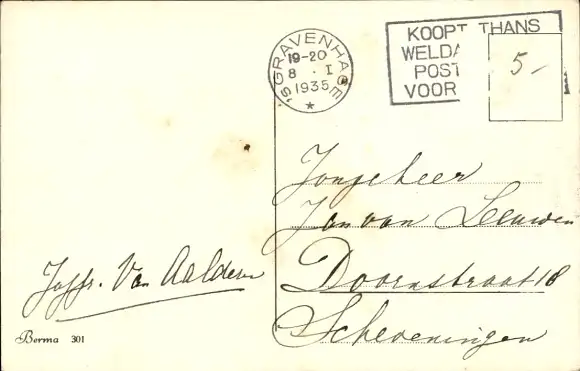 'S GRAVENHAGE
19-20
8 · I
1935
KOOPT THANS
WELDA
POST
VOOR
5-
Jongeheer
Jan van Leeuwen
Doornstraat 18
Scheveningen
Joffr. Van Aalderen
Berma 301